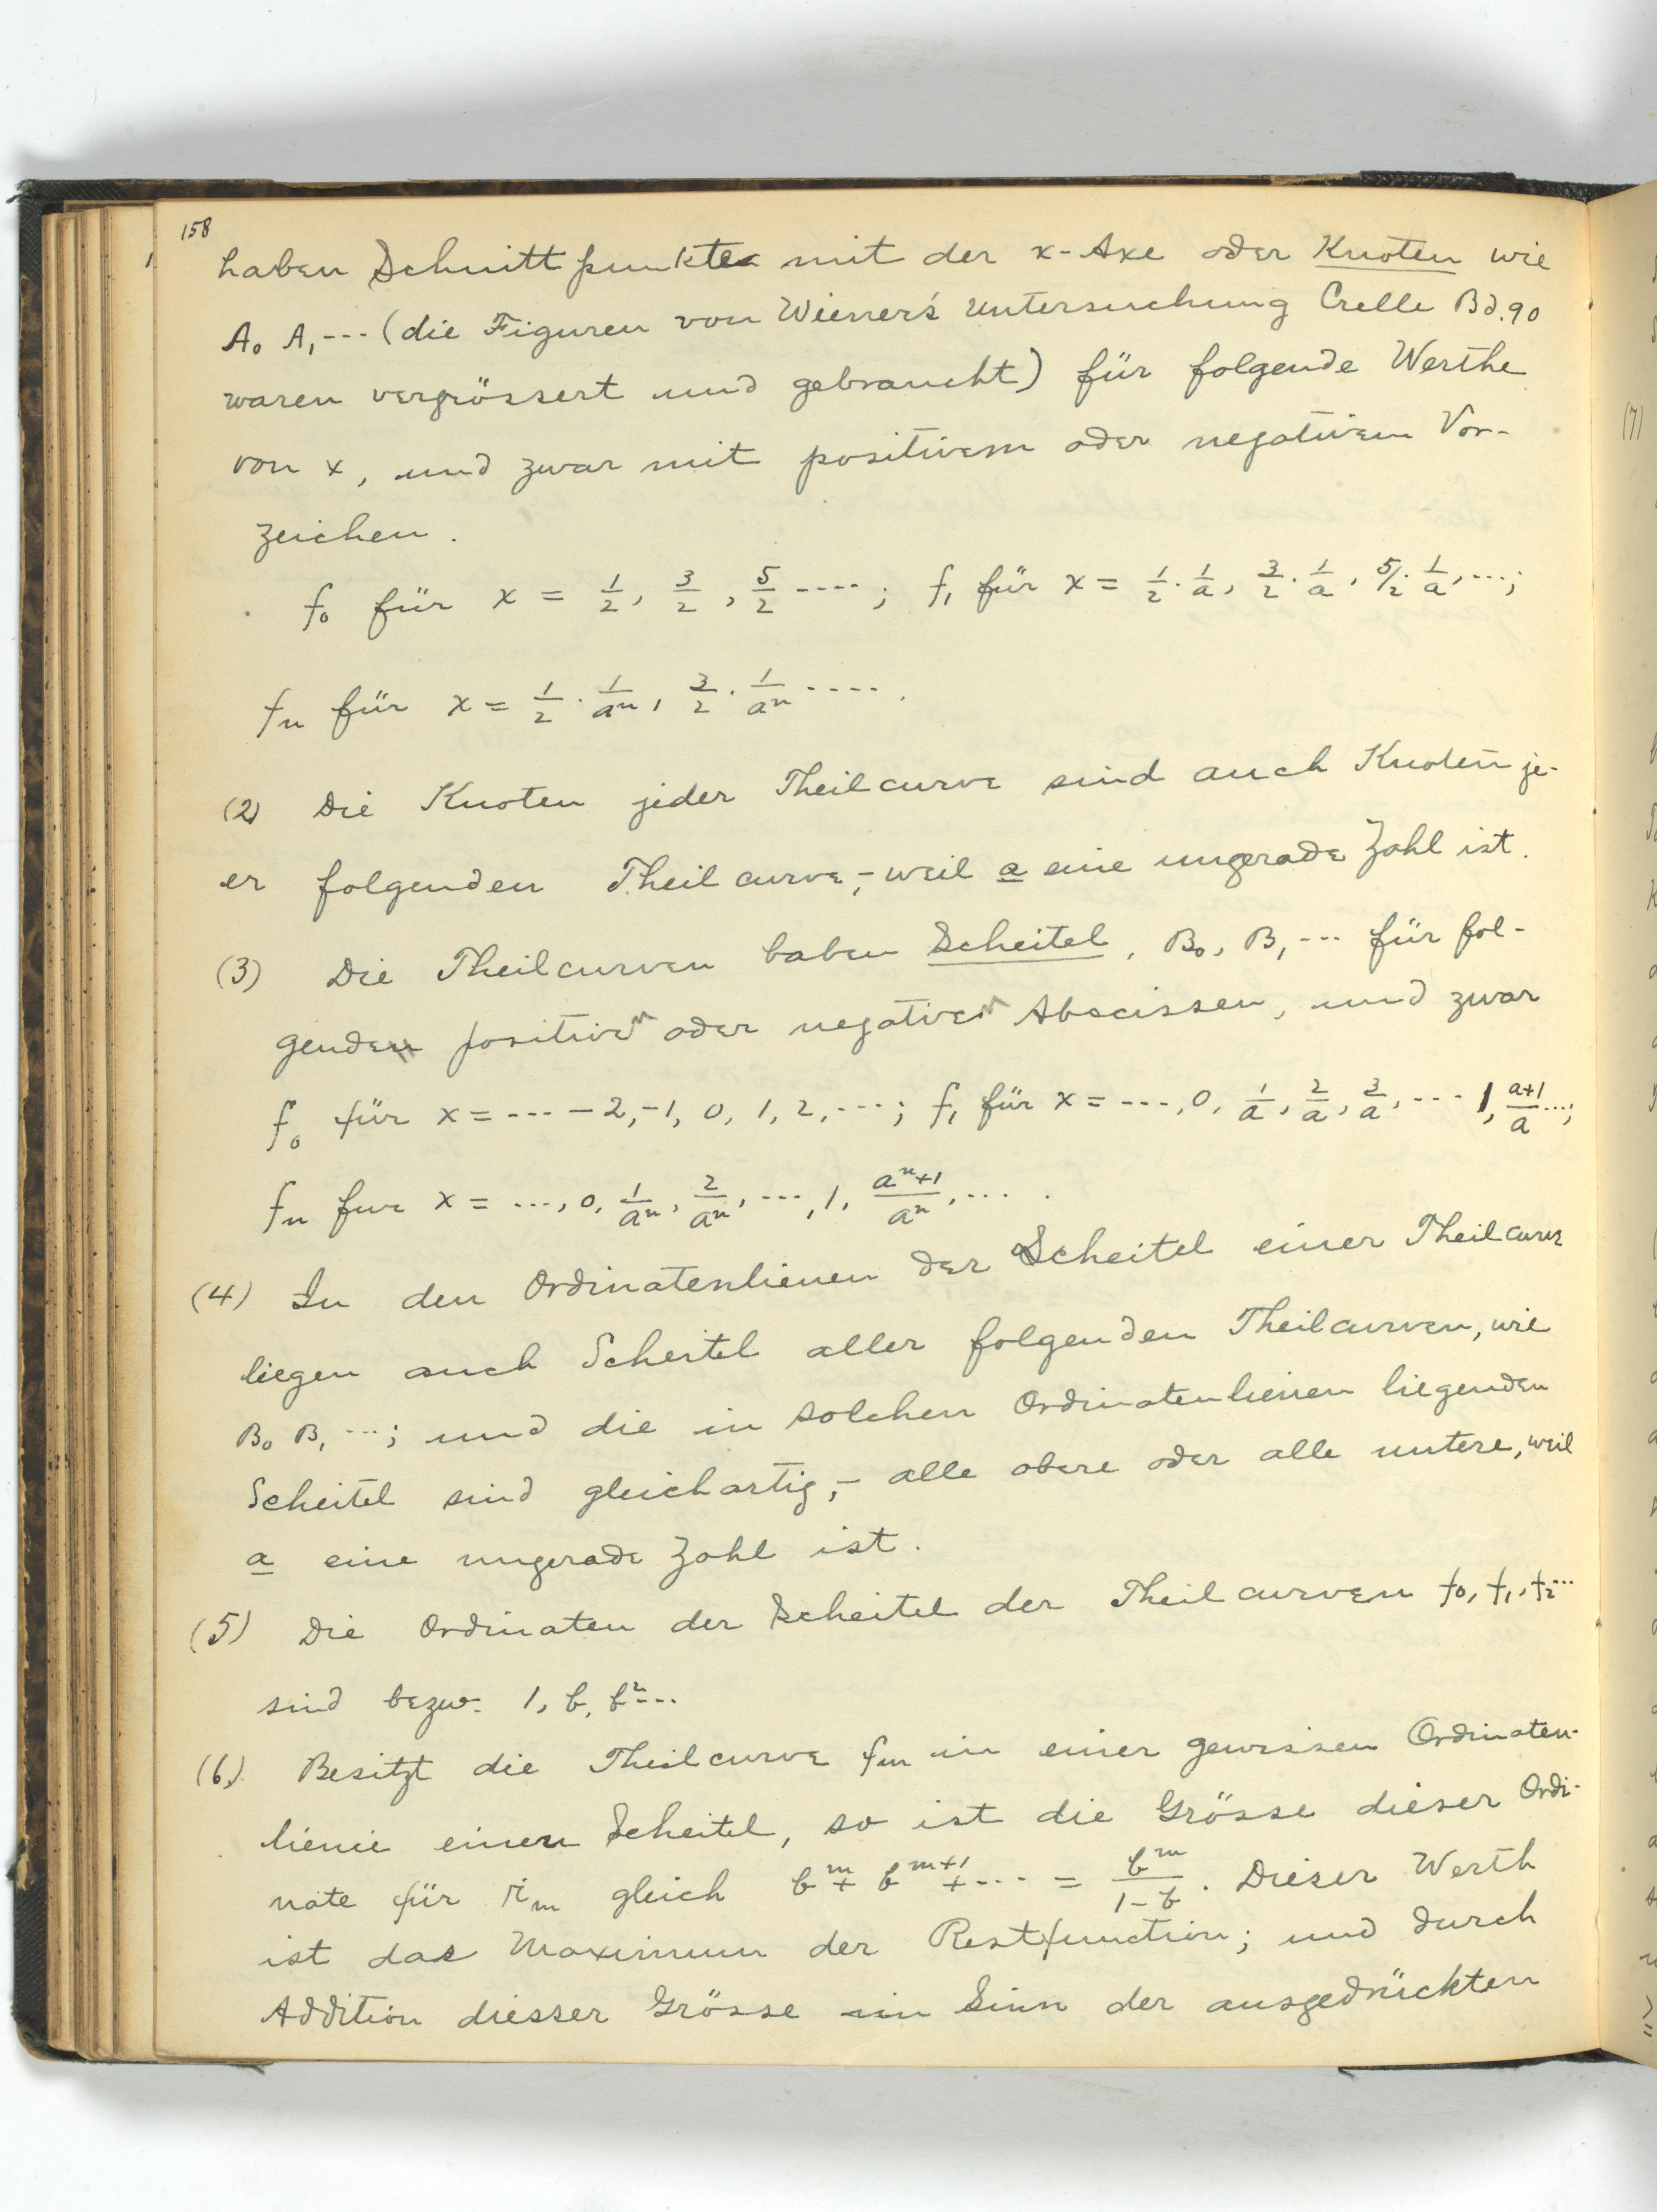 158
haben Schnittpunkte mit der x-Axe oder Knoten wie
A₀ A₁ --- (die Figuren von Wiener's Untersuchung Crelle Bd. 90
waren vergrössert und gebraucht) für folgende Werthe
von x, und zwar mit positivem oder negativem Vor-
zeichen.
f₀ für x = 1/2, 3/2, 5/2 ----; f₁ für x = 1/2 · 1/a, 3/2 · 1/a, 5/2 · 1/a, ---;
fₙ für x = 1/2 · 1/aⁿ, 3/2 · 1/aⁿ ----.
(2) Die Knoten jeder Theilcurve sind auch Knoten je-
er folgenden Theilcurve, – weil a eine ungerade Zahl ist.
(3) Die Theilcurven haben Scheitel, B₀, B₁ --- für fol-
genden positiven oder negativen Abscissen, und zwar
f₀ für x = --- -2, -1, 0, 1, 2, ---; f₁ für x = ---, 0, 1/a, 2/a, 3/a, --- 1, (a+1)/a ---;
fₙ fur x = ---, 0, 1/aⁿ, 2/aⁿ, ---, 1, (aⁿ+1)/aⁿ, --- .
(4) In den Ordinatenlienen der Scheitel einer Theilcurve
liegen auch Scheitel aller folgenden Theilcurven, wie
B₀ B₁ ---; und die in solchen Ordinatenlienen liegenden
Scheitel sind gleichartig, – alle obere oder alle untere, weil
a eine ungerade Zahl ist.
(5) Die Ordinaten der Scheitel der Theilcurven f₀, f₁, f₂ ---
sind bezw. 1, b, b² ---
(6) Besitzt die Theilcurve fₘ in einer gewissen Ordinaten-
lienie einen Scheitel, so ist die Grösse dieser Ordi-
nate für rₘ gleich bᵐ + bᵐ⁺¹ + --- = bᵐ/(1-b). Dieser Werth
ist das Maximum der Restfunction; und durch
Addition diesser Grösse im Sinn der ausgedrückten
(7)